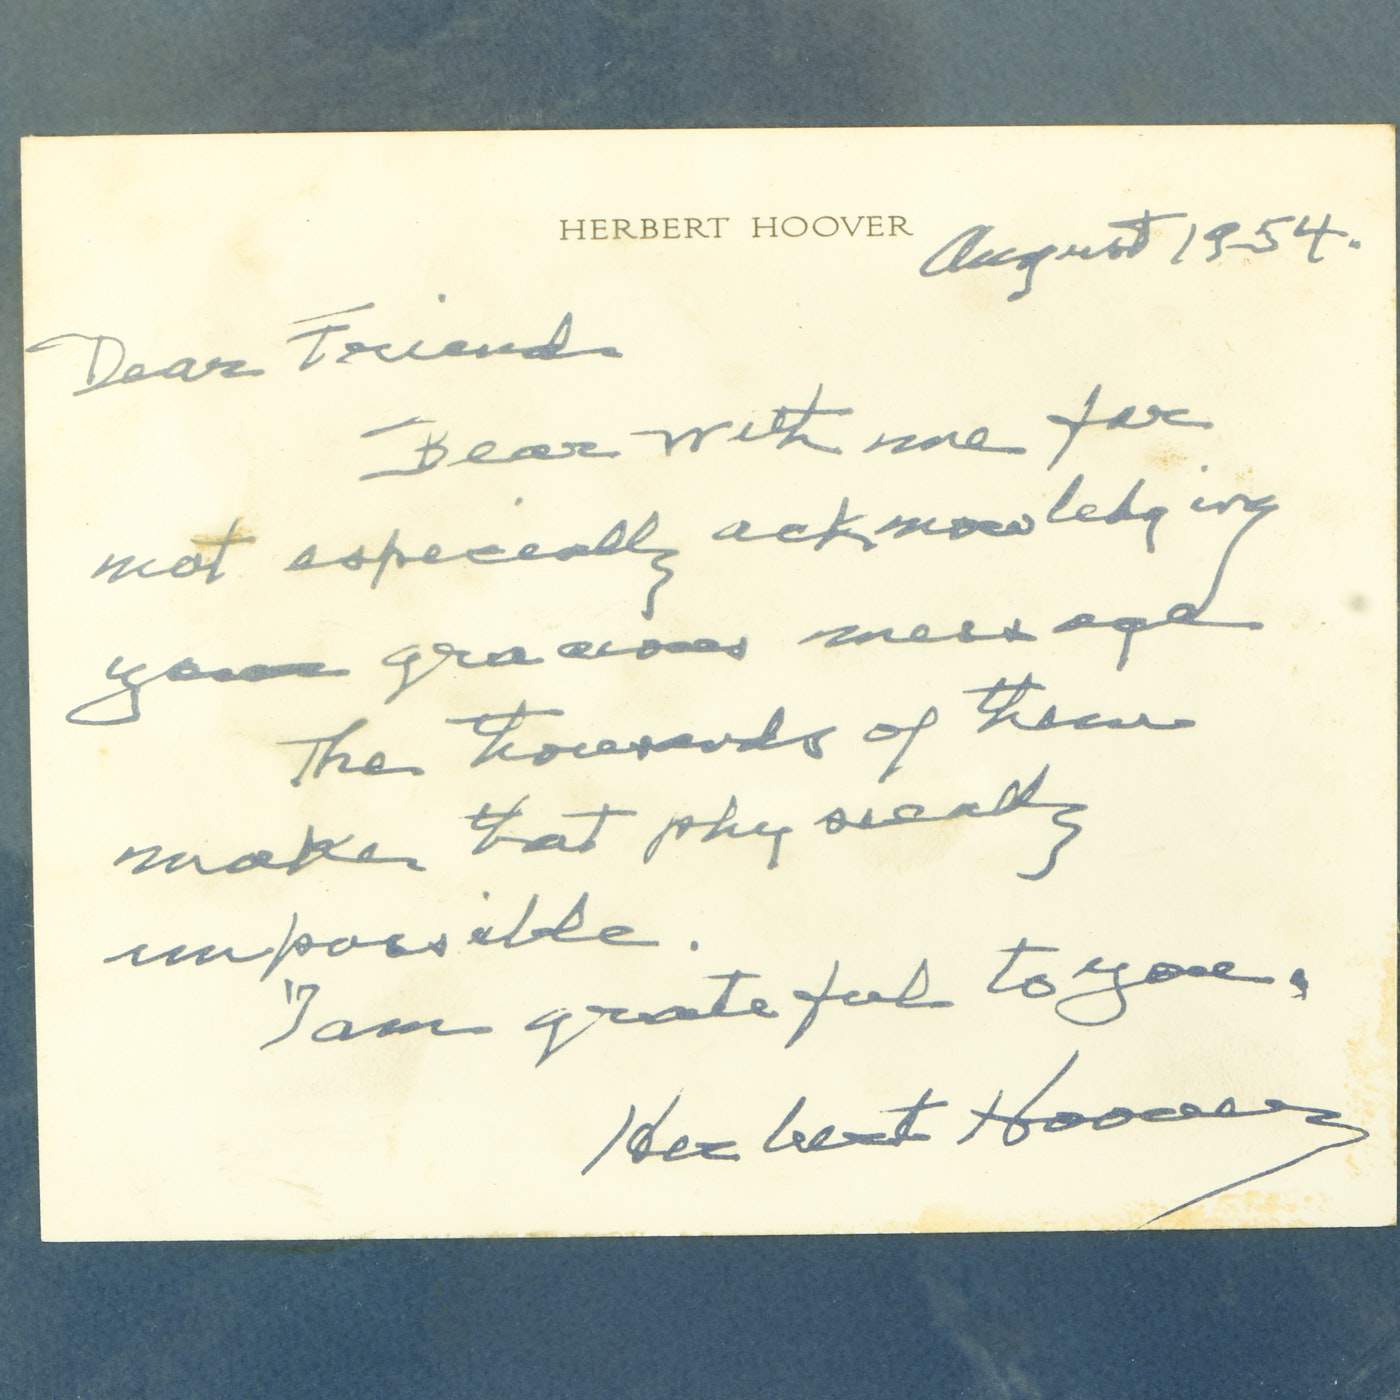 HERBERT HOOVER
August 1954.
Dear Friend
Bear with me for
not especially acknowledging
your gracious message
The thousands of them
make that physically
impossible.
I am grateful to you.
Herbert Hoover